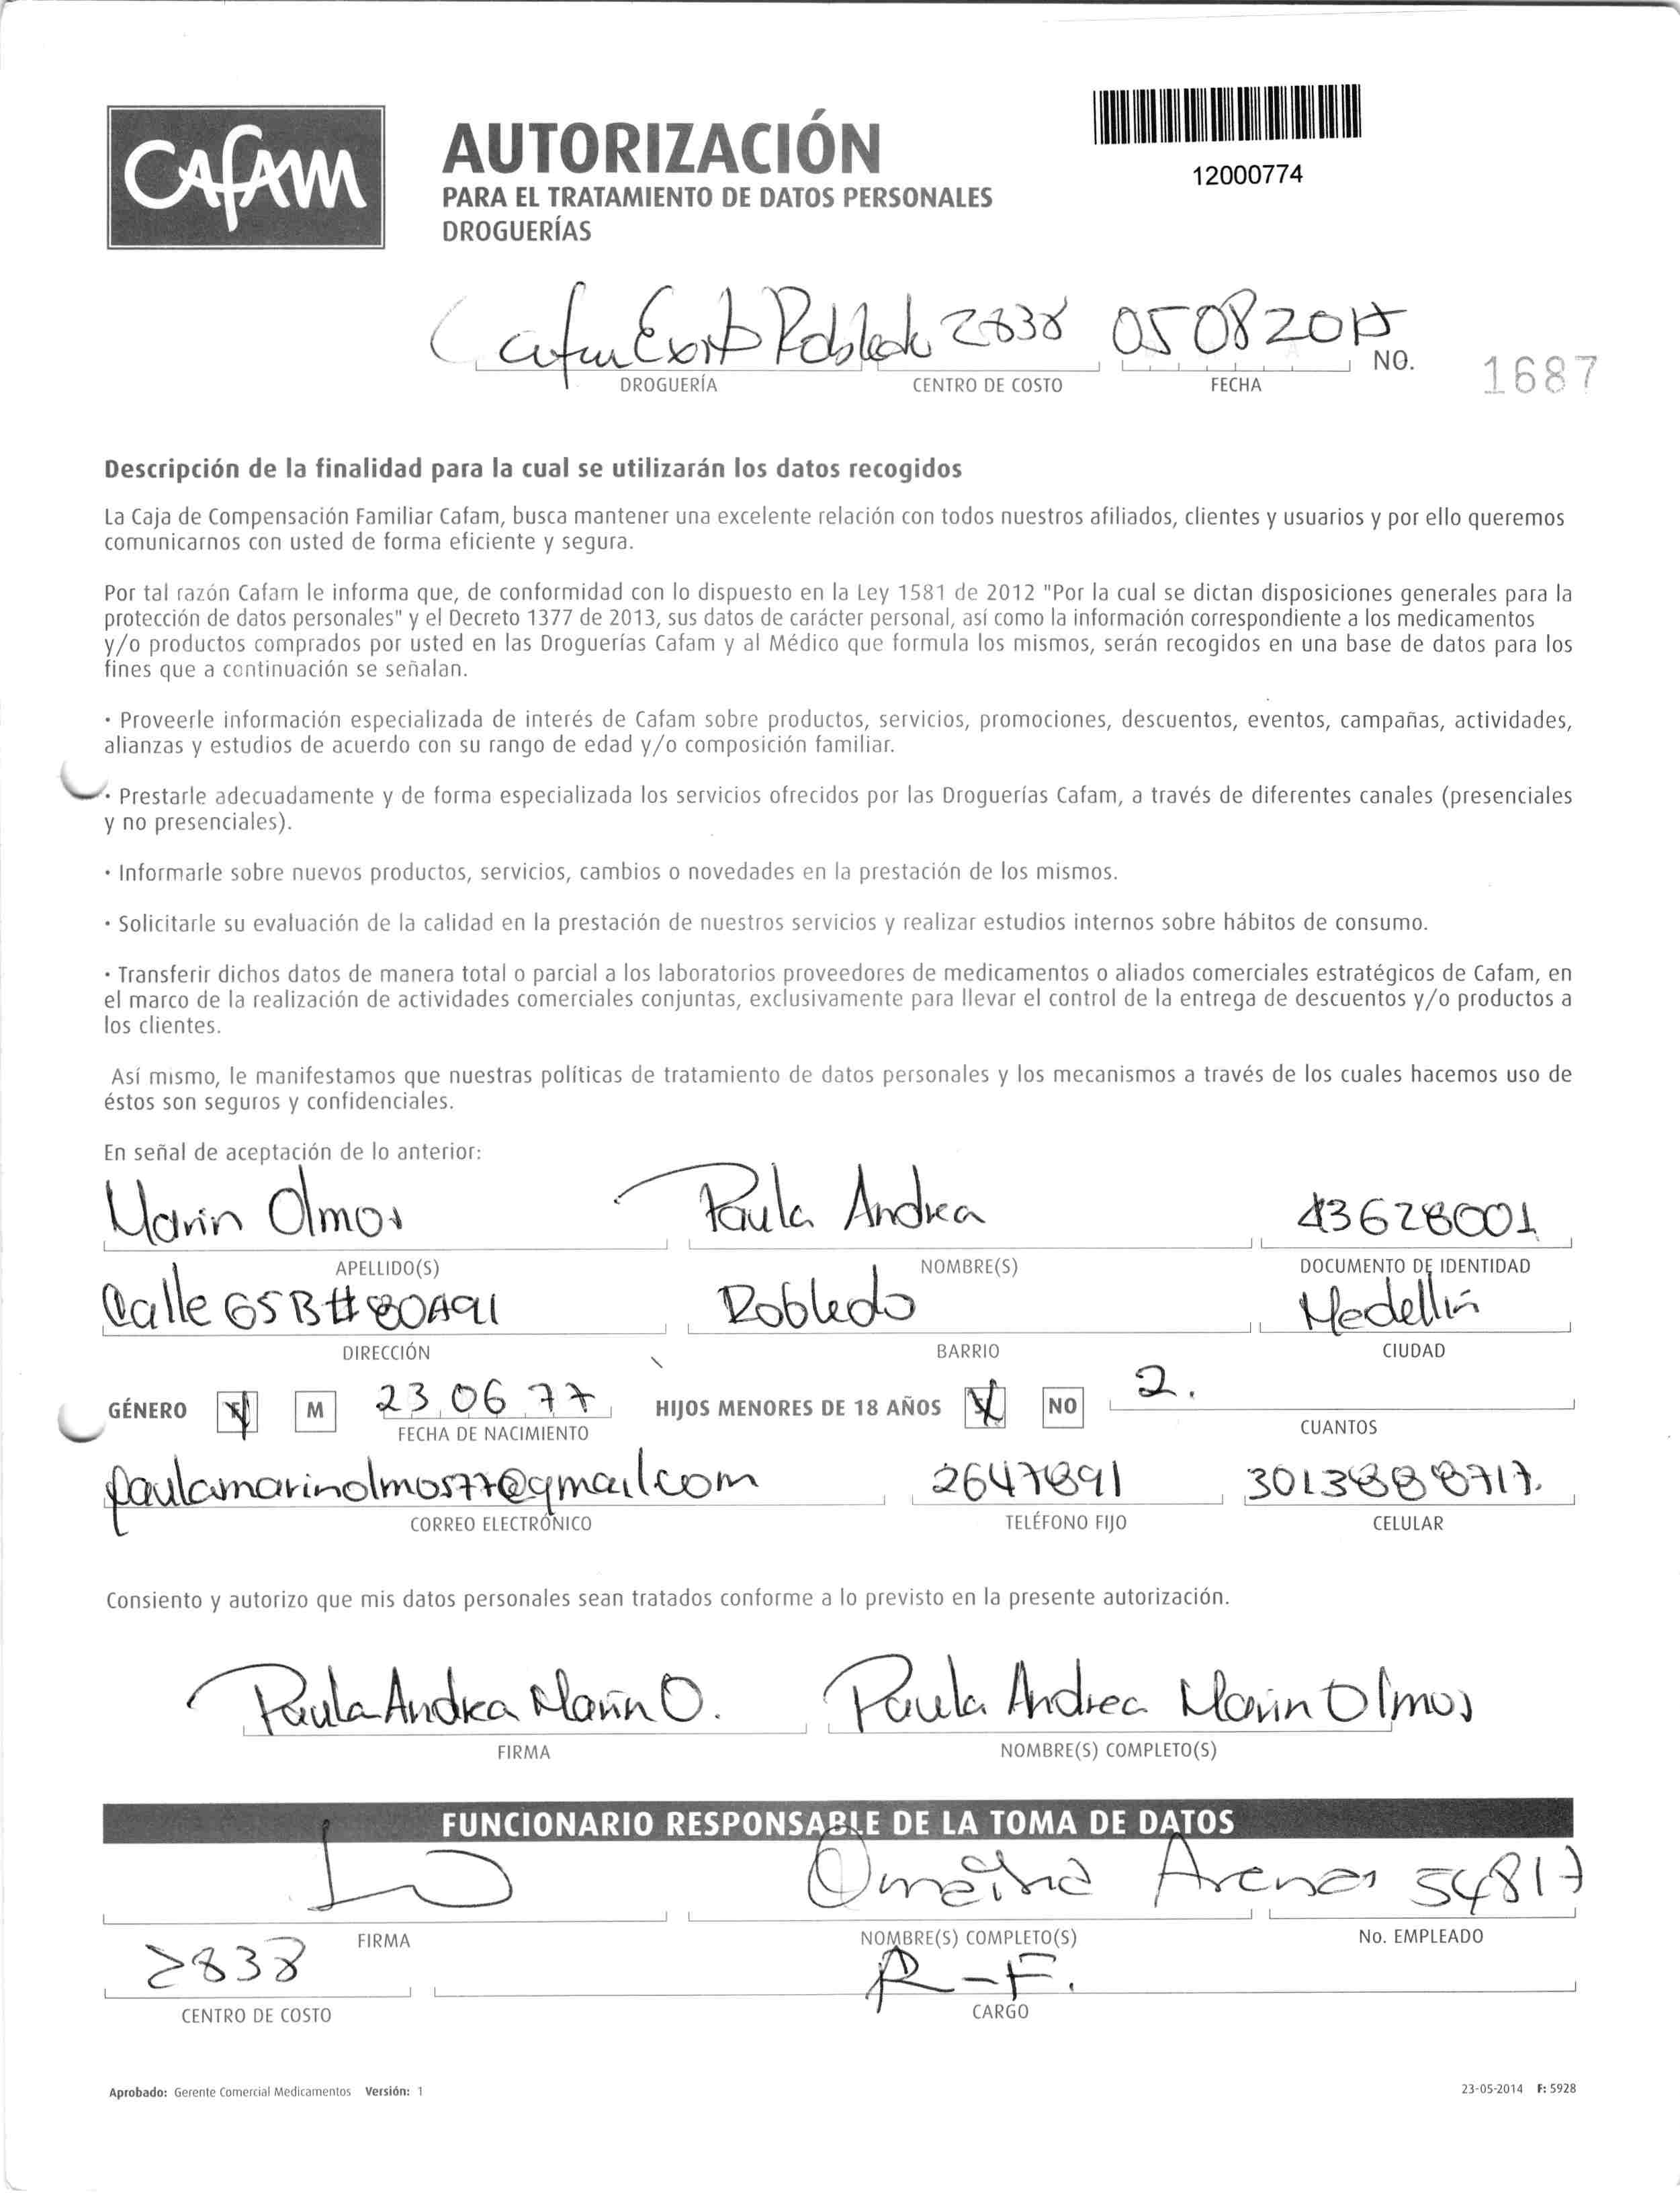 CAFAM
AUTORIZACIÓN
PARA EL TRATAMIENTO DE DATOS PERSONALES
DROGUERÍAS
12000774
Cafam Exito Robledo 2838 05 08 2017
DROGUERÍA CENTRO DE COSTO FECHA NO. 1687
Descripción de la finalidad para la cual se utilizarán los datos recogidos
La Caja de Compensación Familiar Cafam, busca mantener una excelente relación con todos nuestros afiliados, clientes y usuarios y por ello queremos
comunicarnos con usted de forma eficiente y segura.
Por tal razón Cafam le informa que, de conformidad con lo dispuesto en la Ley 1581 de 2012 "Por la cual se dictan disposiciones generales para la
protección de datos personales" y el Decreto 1377 de 2013, sus datos de carácter personal, así como la información correspondiente a los medicamentos
y/o productos comprados por usted en las Droguerías Cafam y al Médico que formula los mismos, serán recogidos en una base de datos para los
fines que a continuación se señalan.
• Proveerle información especializada de interés de Cafam sobre productos, servicios, promociones, descuentos, eventos, campañas, actividades,
alianzas y estudios de acuerdo con su rango de edad y/o composición familiar.
• Prestarle adecuadamente y de forma especializada los servicios ofrecidos por las Droguerías Cafam, a través de diferentes canales (presenciales
y no presenciales).
• Informarle sobre nuevos productos, servicios, cambios o novedades en la prestación de los mismos.
• Solicitarle su evaluación de la calidad en la prestación de nuestros servicios y realizar estudios internos sobre hábitos de consumo.
• Transferir dichos datos de manera total o parcial a los laboratorios proveedores de medicamentos o aliados comerciales estratégicos de Cafam, en
el marco de la realización de actividades comerciales conjuntas, exclusivamente para llevar el control de la entrega de descuentos y/o productos a
los clientes.
Así mismo, le manifestamos que nuestras políticas de tratamiento de datos personales y los mecanismos a través de los cuales hacemos uso de
éstos son seguros y confidenciales.
En señal de aceptación de lo anterior:
Marin Olmos Paula Andrea 43628001
APELLIDO(S) NOMBRE(S) DOCUMENTO DE IDENTIDAD
Calle 65B # 80A91 Robledo Medellin
DIRECCIÓN BARRIO CIUDAD
GÉNERO F M 23 06 77 HIJOS MENORES DE 18 AÑOS SI NO 2.
FECHA DE NACIMIENTO CUANTOS
paulamarinolmos77@gmail.com 2647891 3013888717.
CORREO ELECTRÓNICO TELÉFONO FIJO CELULAR
Consiento y autorizo que mis datos personales sean tratados conforme a lo previsto en la presente autorización.
Paula Andrea Marin O. Paula Andrea Marin Olmos
FIRMA NOMBRE(S) COMPLETO(S)
FUNCIONARIO RESPONSABLE DE LA TOMA DE DATOS
Omaira Arenas 54817
FIRMA NOMBRE(S) COMPLETO(S) No. EMPLEADO
2838 R-F.
CENTRO DE COSTO CARGO
Aprobado: Gerente Comercial Medicamentos Versión: 1 23-05-2014 F: 5928